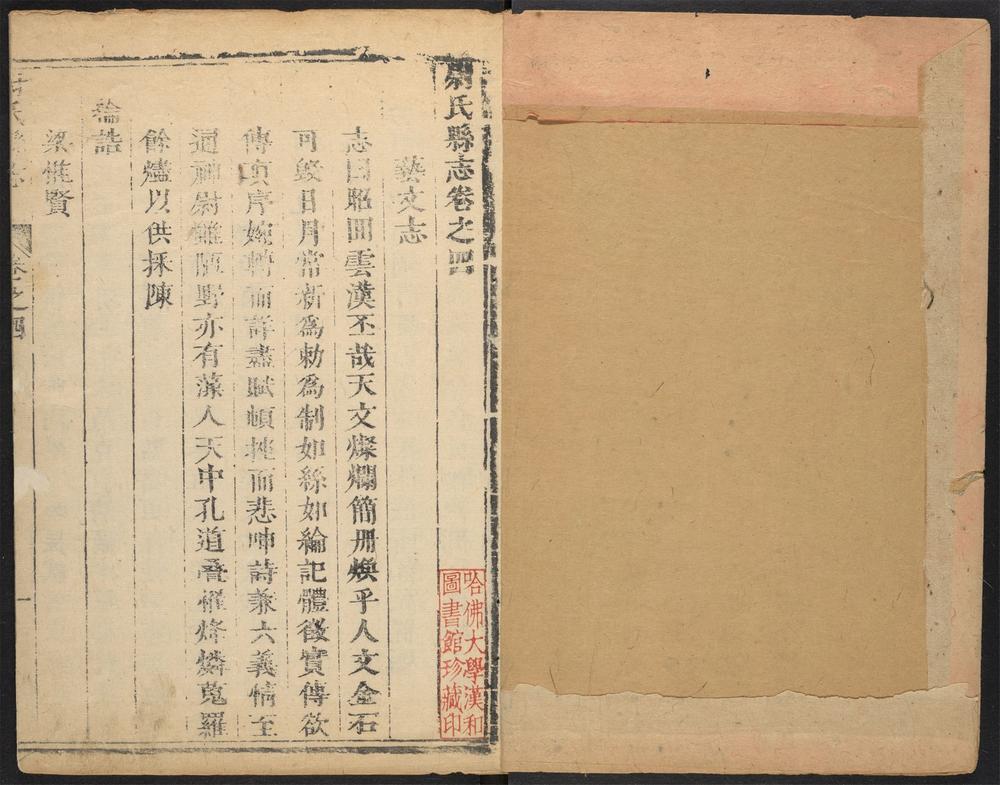 尉氏縣志卷之四
藝文志
志曰昭囬雲漢丕哉天文燦爛簡册煥乎人文金石
可毀日月常新爲勅爲制如絲如綸記體徵實傳欲
傳眞序婉轉而詳盡賦頓挫而悲呻詩兼六義情至
通神尉雖陋野亦有藻人天中孔道疊罹烽燐蒐羅
餘燼以供採陳
綸誥
梁惟賢
氏縣志
卷之四
一
哈佛大學漢和
圖書館珍藏印